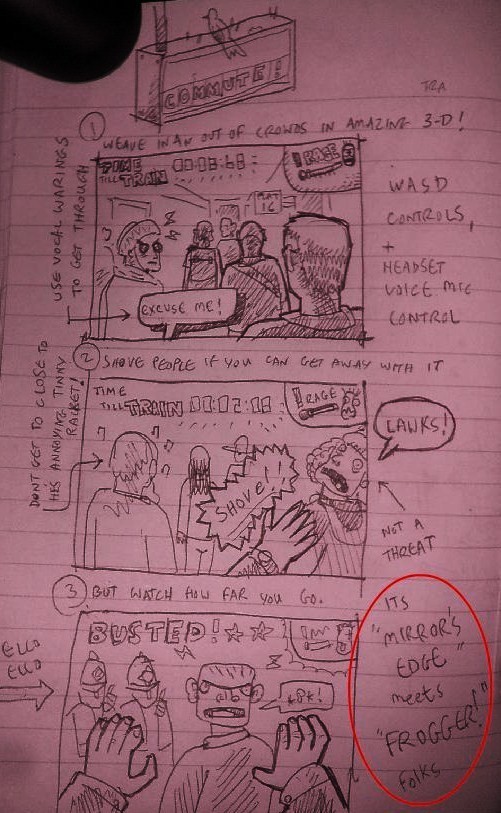 COMMUTE!
1
WEAVE IN AN OUT OF CROWDS IN AMAZING 3-D!
TIME
TILL TRAIN
RAGE
PLAT
16
EXCUSE ME!
USE VOCAL WARINGS
TO GET THROUGH
WASD
CONTROLS,
+
HEADSET
VOICE MIC
CONTROL
2
SHOVE PEOPLE IF YOU CAN GET AWAY WITH IT
TIME
TILL TRAIN
! RAGE
SHOVE!
LAWKS!
NOT A
THREAT
DONT GET TO CLOSE TO
HIS ANNOYING TINNY
RACKET!
3
BUT WATCH HOW FAR YOU GO.
BUSTED!
ELLO
ELLO
ITS
"MIRROR'S
EDGE"
meets
"FROGGER!"
folks